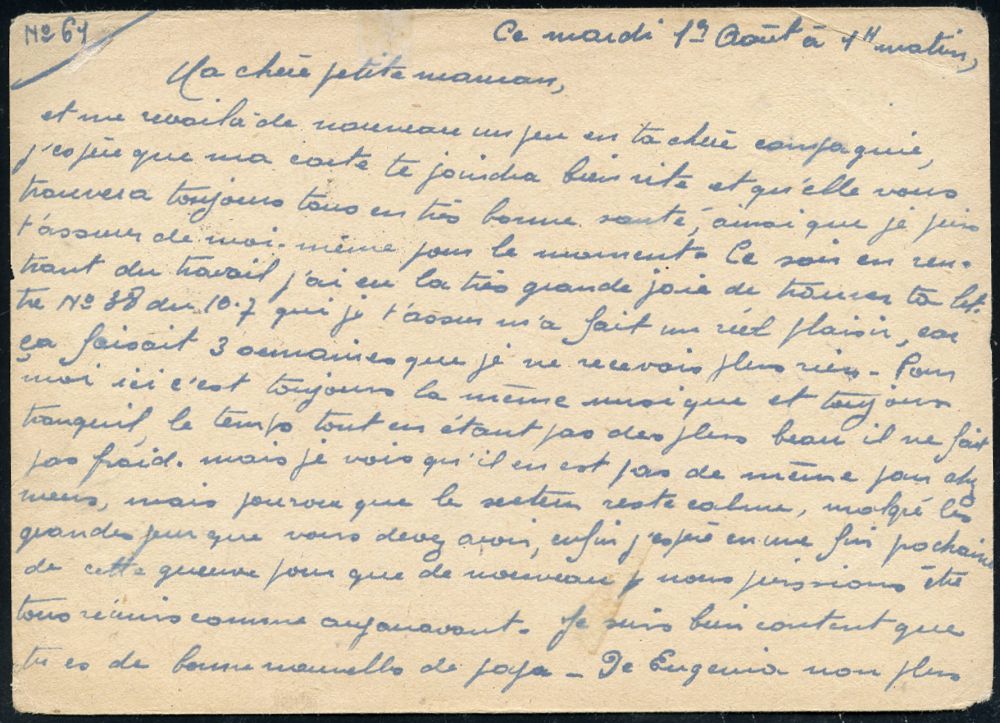 No 61
Ce mardi 1er Août à 1H matin,
Ma chère petite maman,
et me revoilà de nouveau un peu en ta chère compagnie,
j'espère que ma carte te joindra bien vite et qu'elle vous
trouvera toujours tous en très bonne santé, ainsi que je puis
t'assurer de moi-même pour le moment. Ce soir en ren-
trant du travail j'ai eu la très grande joie de trouver ta let-
tre No 38 du 10.7 qui je t'assure m'a fait un réel plaisir, car
ça faisait 3 semaines que je ne recevais plus rien - Pour
moi ici c'est toujours la même musique et toujours
tranquil, le temps tout en étant pas des plus beau il ne fait
pas froid. mais je vois qu'il en est pas de même par chez
mens, mais pourvu que le secteur reste calme, malgré les
grandes peur que vous devez avoir, enfin j'espère en une fin prochaine
de cette guerre pour que de nouveau nous puissions être
tous réunis comme auparavant. Je suis bien content que
tu es de bonne nouvelles de papa - De Eugenia non plus